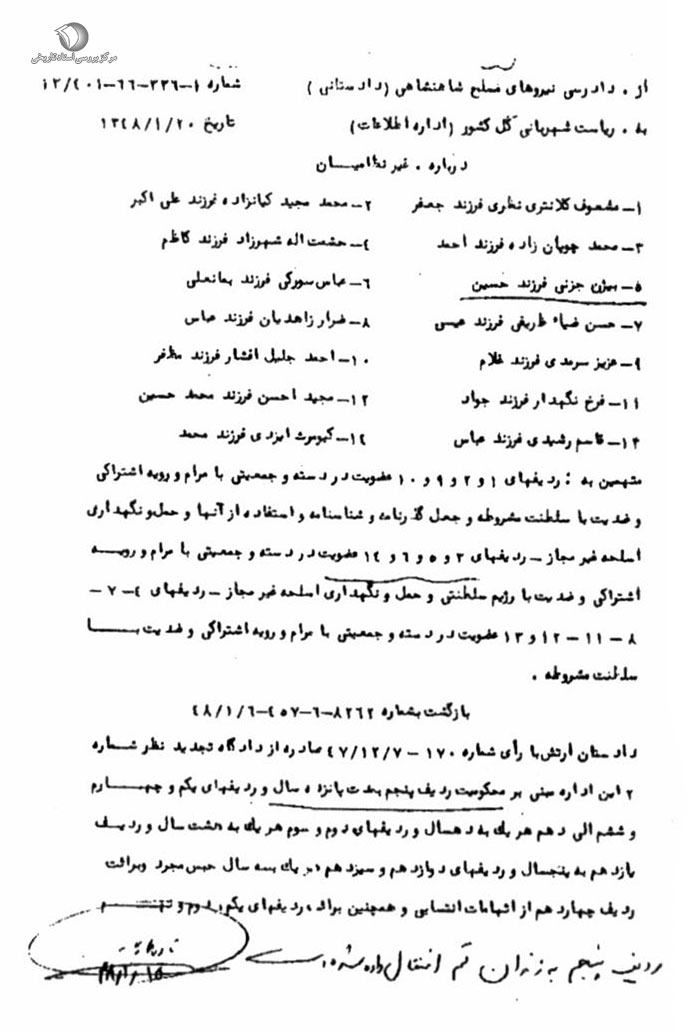 مرکز بررسی اسناد تاریخی
از . دادرسی نیروهای مسلح شاهنشاهی (دادستانی) شماره ۱-۳۳۶-۶۶-۱۲/۴۰۱
به . ریاست شهربانی کل کشور (اداره اطلاعات) تاریخ ۱۳۴۸/۱/۲۰
درباره . غیر نظامیان
۱- مشعوف کلانتری نظری فرزند جعفر ۲- محمد مجید کیانزاده فرزند علی اکبر
۳- محمد چوپان زاده فرزند احمد ۴- حشمت اله شهرزاد فرزند کاظم
۵- بیژن جزنی فرزند حسین ۶- عباس سورکی فرزند بمانعلی
۷- حسن ضیاء ظریفی فرزند عیسی ۸- ضرار زاهدیان فرزند عباس
۹- عزیز سرمدی فرزند غلام ۱۰- احمد جلیل افشار فرزند مظفر
۱۱- فرخ نگهدار فرزند جواد ۱۲- مجید احسن فرزند محمد حسین
۱۴- قاسم رشیدی فرزند عباس ۱۳- کیومرث ایزدی فرزند محمد
متهمین به : ردیفهای ۱ و ۲ و ۹ و ۱۰ عضویت در دسته و جمعیتی با مرام و رویه اشتراکی
و ضدیت با سلطنت مشروطه و جعل گذرنامه و شناسنامه و استفاده از آنها و حمل و نگهداری
اسلحه غیر مجاز - ردیفهای ۳ و ۵ و ۶ و ۱۴ عضویت در دسته و جمعیتی با مرام و رویه
اشتراکی و ضدیت با رژیم سلطنتی و حمل و نگهداری اسلحه غیر مجاز - ردیفهای ۴ - ۷ -
۸ - ۱۱ - ۱۲ و ۱۳ عضویت در دسته و جمعیتی با مرام و رویه اشتراکی و ضدیت با
سلطنت مشروطه .
بازگشت بشماره ۸۲۶۲-۶-۴۵۷-۴۸/۱/۶
دادستان ارتش با رأی شماره ۱۷۰ - ۴۷/۱۲/۷ صادره از دادگاه تجدید نظر شماره
۲ این اداره مبنی بر محکومیت ردیف پنجم بمدت پانزده سال و ردیفهای یکم و چهارم
و ششم الی دهم هر یک به دهسال و ردیفهای دوم و سوم هر یک به هشت سال و ردیف
یازدهم به پنجسال و ردیفهای دوازدهم و سیزدهم هر یک بسه سال حبس مجرد وبرائت
ردیف چهاردهم از اتهامات انتسابی و همچنین برائت ردیفهای یکم، دوم و نهم
ردیف پنجم به زندان قم انتقال داده شده.